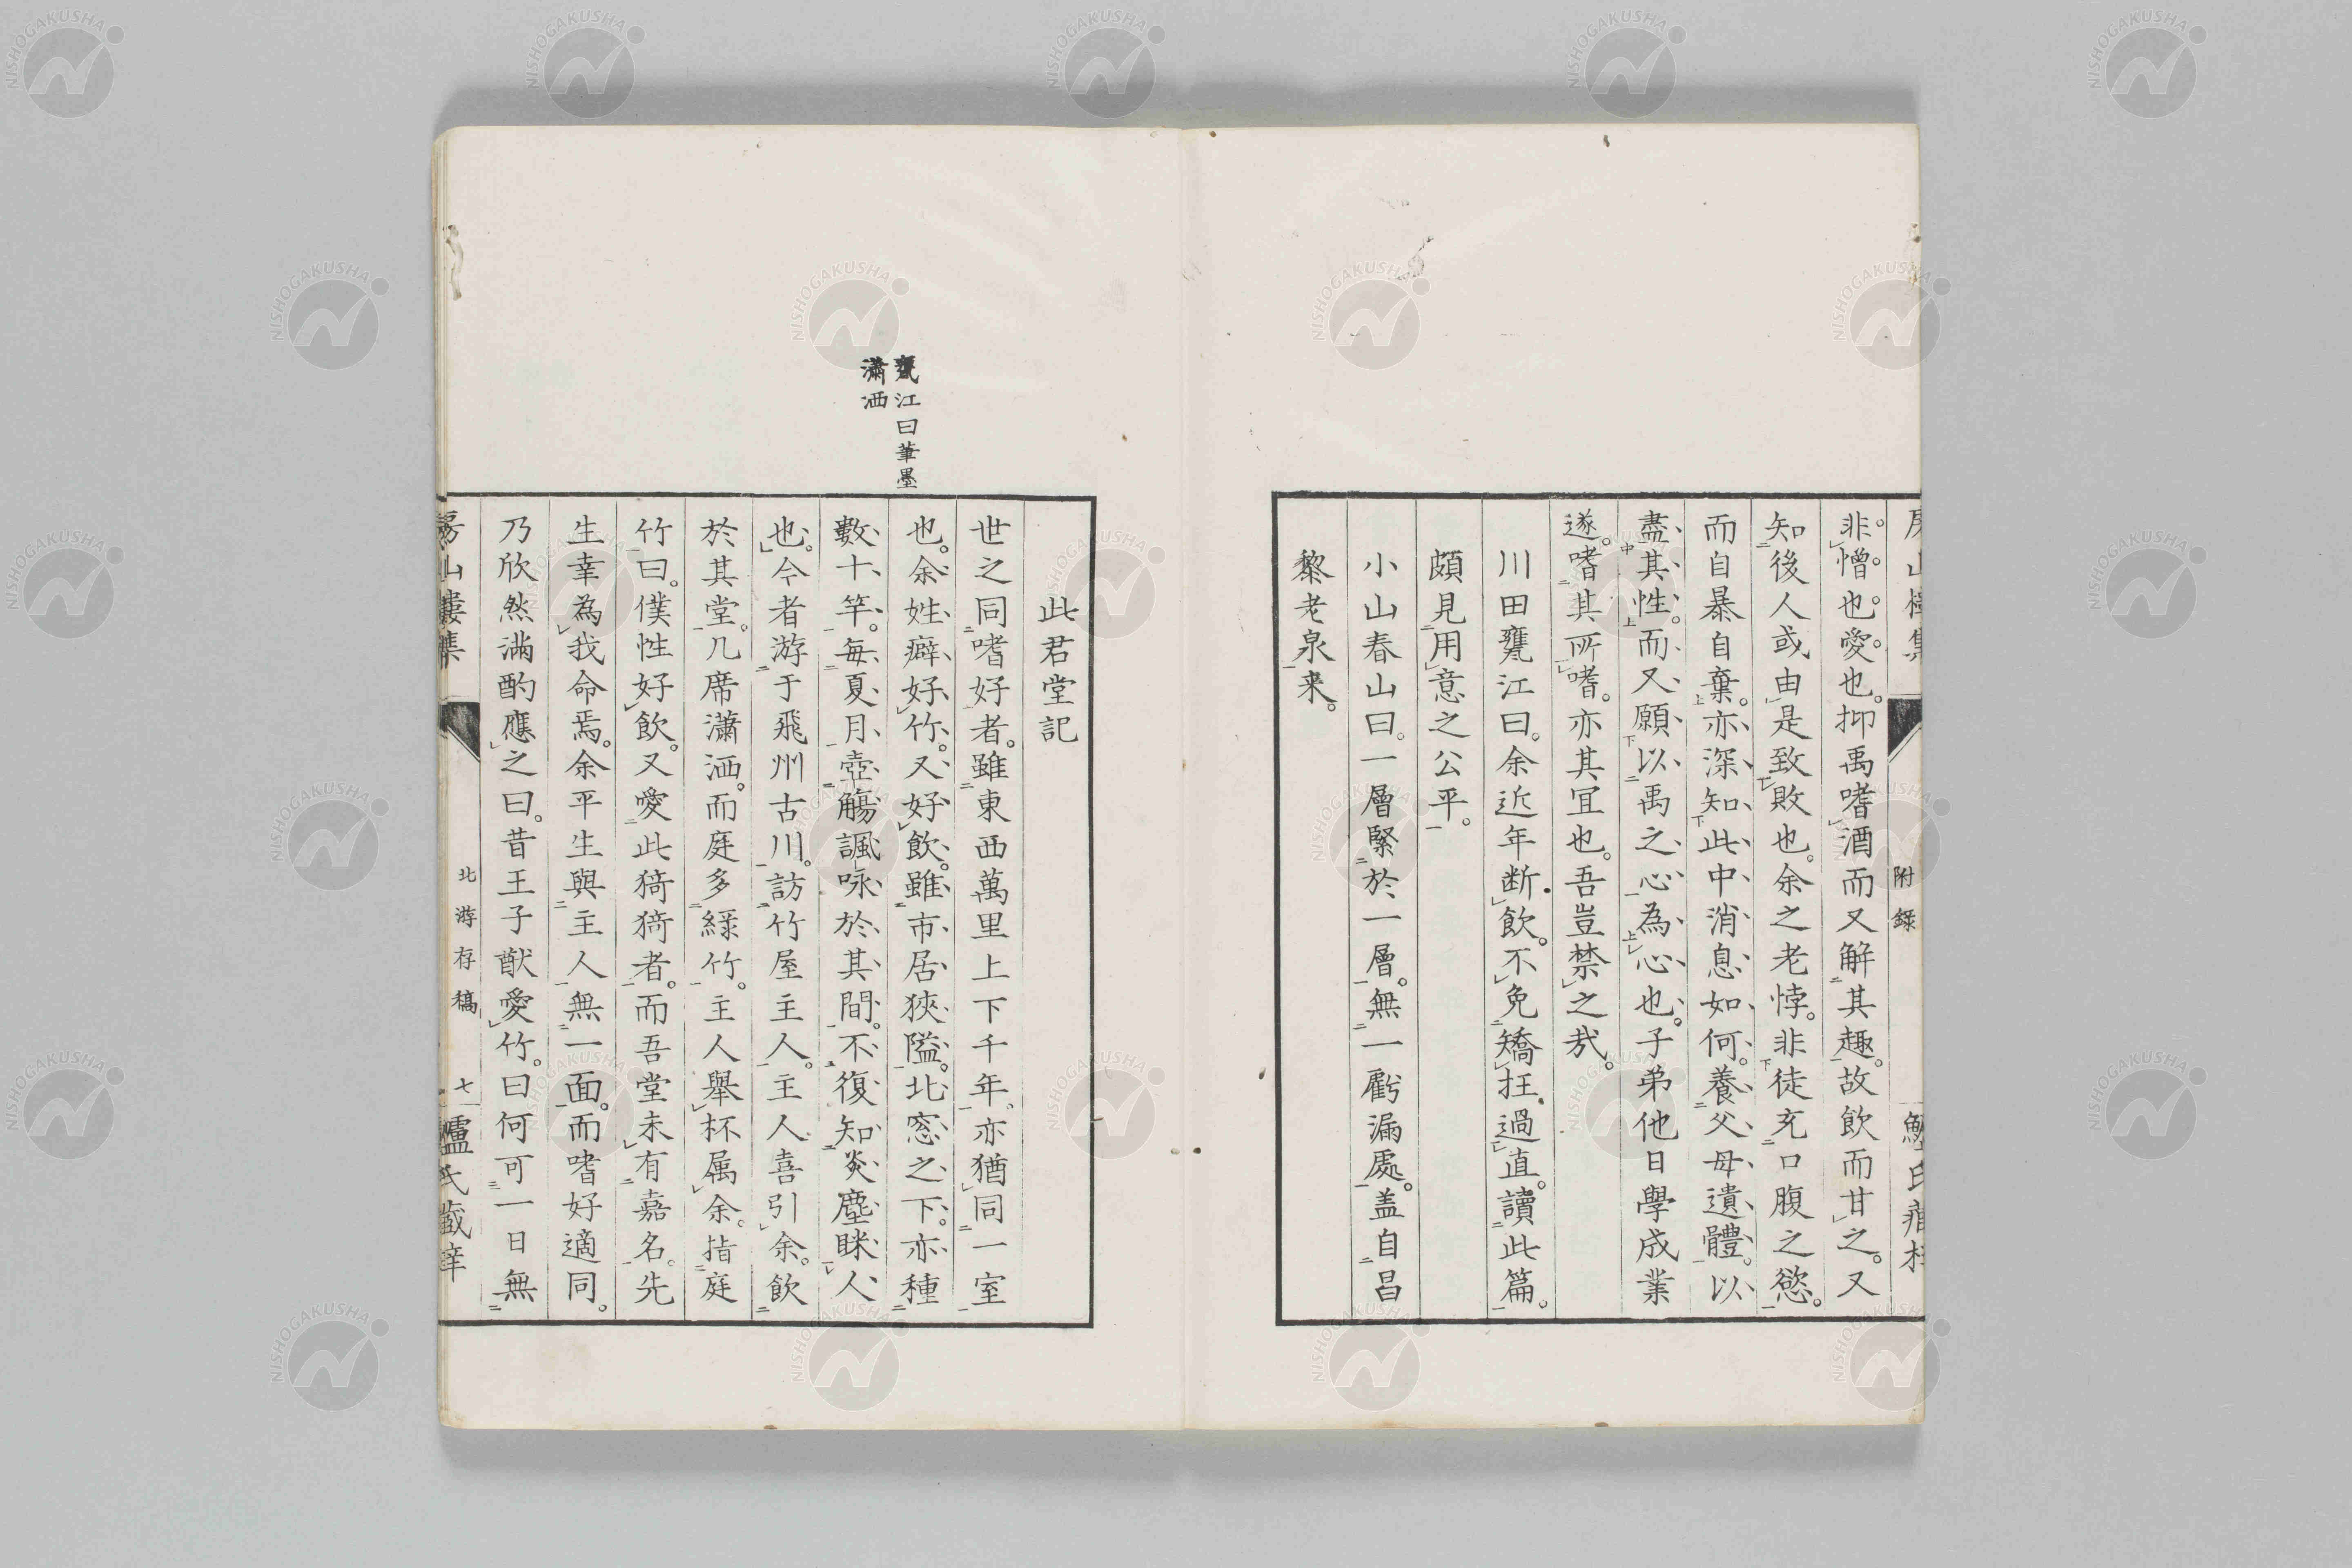 附錄
非憎也愛也。抑禹嗜酒而又解其趣。故飲而甘之。又
知後人或由是致敗也。余之老悖。非徒充口腹之慾。
而自暴自棄。亦深知此中消息如何。養父母遺體。以
盡其性。而又願以禹之心為心也。子弟他日學成業
遂。嗜其所嗜。亦其宜也。吾豈禁之哉。
川田甕江曰。余近年断飲。不免矯枉過直。讀此篇。
頗見用意之公平。
小山春山曰。一層緊於一層。無一虧漏處。盖自呂
黎老泉来。
甕江曰筆墨
瀟洒
此君堂記
世之同嗜好者。雖東西萬里上下千年。亦猶同一室
也。余姓癖好竹。又好飲。雖市居狹隘。北窓之下。亦種
數十竿。每夏月壺觴諷咏於其間。不復知炎塵眯人
也。今者游于飛州古川。訪竹屋主人。主人喜引余。飲
於其堂。几席瀟洒。而庭多綠竹。主人舉杯属余。指庭
竹曰。僕性好飲。又愛此猗猗者。而吾堂未有嘉名。先
生幸為我命焉。余平生與主人無一面。而嗜好適同。
乃欣然滿酌應之曰。昔王子猷愛竹。曰何可一日無
房山樓集
北游存稿
七
鱸氏藏梓